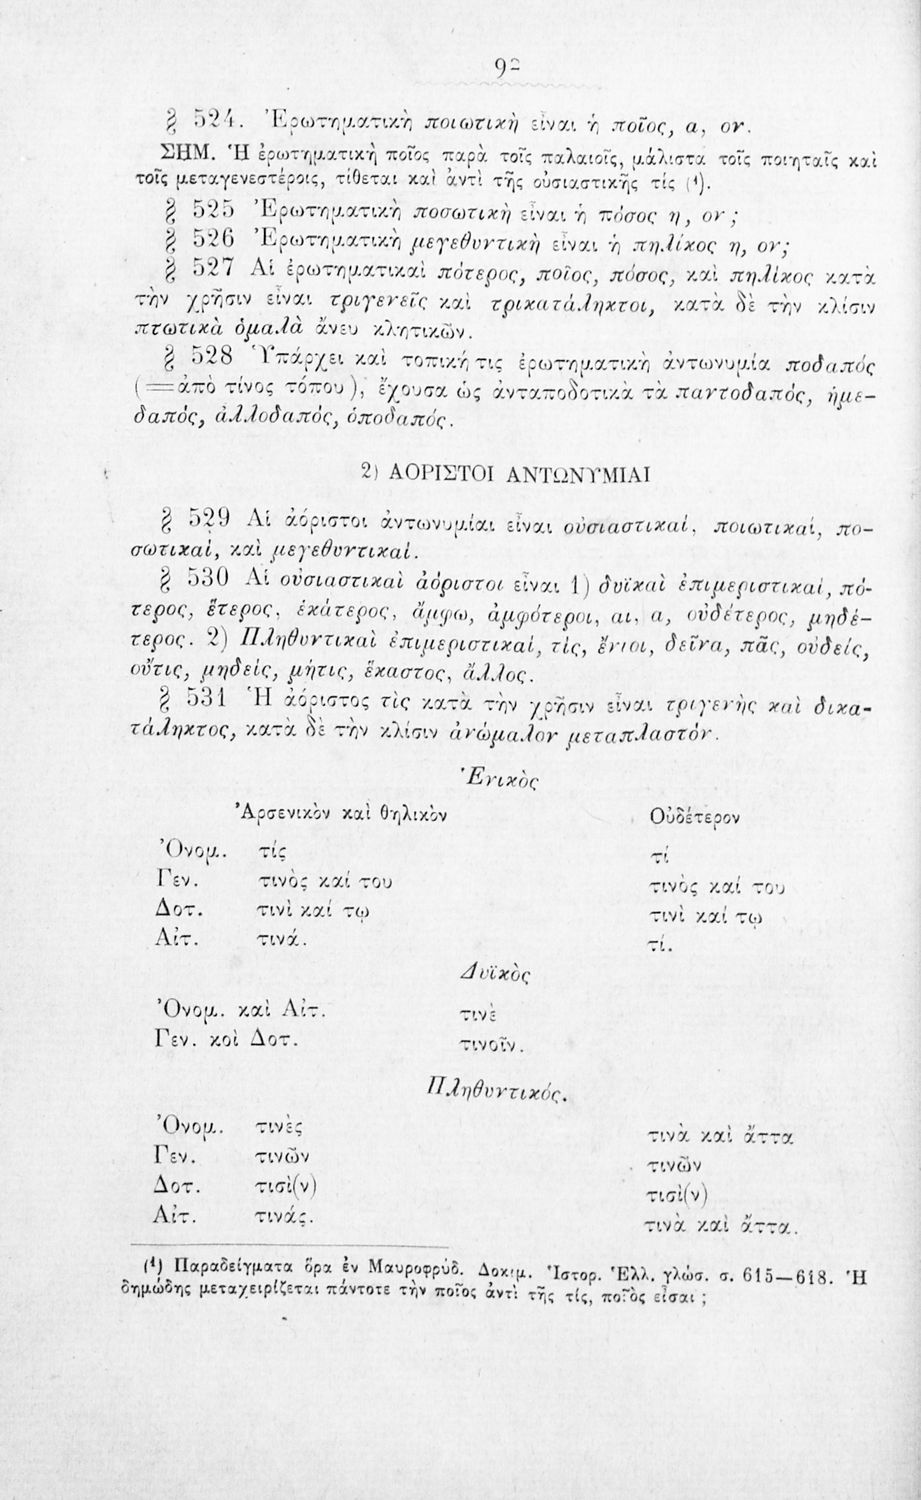 92
§ 524. Ἐρωτηματικὴ ποιωτικὴ εἶναι ἡ ποῖος, α, ον.
ΣΗΜ. Ἡ ἐρωτηματικὴ ποῖος παρὰ τοῖς παλαιοῖς, μάλιστα τοῖς ποιηταῖς καὶ
τοῖς μεταγενεστέροις, τίθεται καὶ ἀντὶ τῆς οὐσιαστικῆς τίς (¹).
§ 525 Ἐρωτηματικὴ ποσωτικὴ εἶναι ἡ πόσος η, ον ;
§ 526 Ἐρωτηματικὴ μεγεθυντικὴ εἶναι ἡ πηλίκος η, ον;
§ 527 Αἱ ἐρωτηματικαὶ πότερος, ποῖος, πόσος, καὶ πηλίκος κατὰ
τὴν χρῆσιν εἶναι τριγενεῖς καὶ τρικατάληκτοι, κατὰ δὲ τὴν κλίσιν
πτωτικὰ ὁμαλὰ ἄνευ κλητικῶν.
§ 528 Ὑπάρχει καὶ τοπική τις ἐρωτηματικὴ ἀντωνυμία ποδαπός
(=ἀπὸ τίνος τόπου), ἔχουσα ὡς ἀνταποδοτικὰ τὰ παντοδαπός, ἡμε-
δαπός, ἀλλοδαπός, ὁποδαπός.
2) ΑΟΡΙΣΤΟΙ ΑΝΤΩΝΥΜΙΑΙ
§ 529 Αἱ ἀόριστοι ἀντωνυμίαι εἶναι οὐσιαστικαί, ποιωτικαί, πο-
σωτικαί, καὶ μεγεθυντικαί.
§ 530 Αἱ οὐσιαστικαὶ ἀόριστοι εἶναι 1) δυϊκαὶ ἐπιμεριστικαί, πό-
τερος, ἕτερος, ἑκάτερος, ἄμφω, ἀμφότεροι, αι, α, οὐδέτερος, μηδέ-
τερος. 2) Πληθυντικαὶ ἐπιμεριστικαί, τὶς, ἔνιοι, δεῖνα, πᾶς, οὐδείς,
οὔτις, μηδείς, μήτις, ἕκαστος, ἄλλος.
§ 531 Ἡ ἀόριστος τὶς κατὰ τὴν χρῆσιν εἶναι τριγενὴς καὶ δικα-
τάληκτος, κατὰ δὲ τὴν κλίσιν ἀνώμαλον μεταπλαστόν.
Ἑνικὸς
Ἀρσενικὸν καὶ θηλικὸν Οὐδέτερον
Ὀνομ. τίς τί
Γεν. τινὸς καί του τινὸς καί του
Δοτ. τινὶ καί τῳ τινὶ καί τῳ
Αἰτ. τινά. τί.
Δυϊκὸς
Ὀνομ. καὶ Αἰτ. τινὲ
Γεν. κοὶ Δοτ. τινοῖν.
Πληθυντικός.
Ὀνομ. τινὲς τινὰ καὶ ἄττα
Γεν. τινῶν τινῶν
Δοτ. τισὶ(ν) τισὶ(ν)
Αἰτ. τινάς. τινὰ καὶ ἄττα.
(¹) Παραδείγματα ὅρα ἐν Μαυροφρύδ. Δοκιμ. Ἱστορ. Ἑλλ. γλώσ. σ. 615—618. Ἡ
δημώδης μεταχειρίζεται πάντοτε τὴν ποῖος ἀντὶ τῆς τίς, ποῖὸς εἶσαι ;